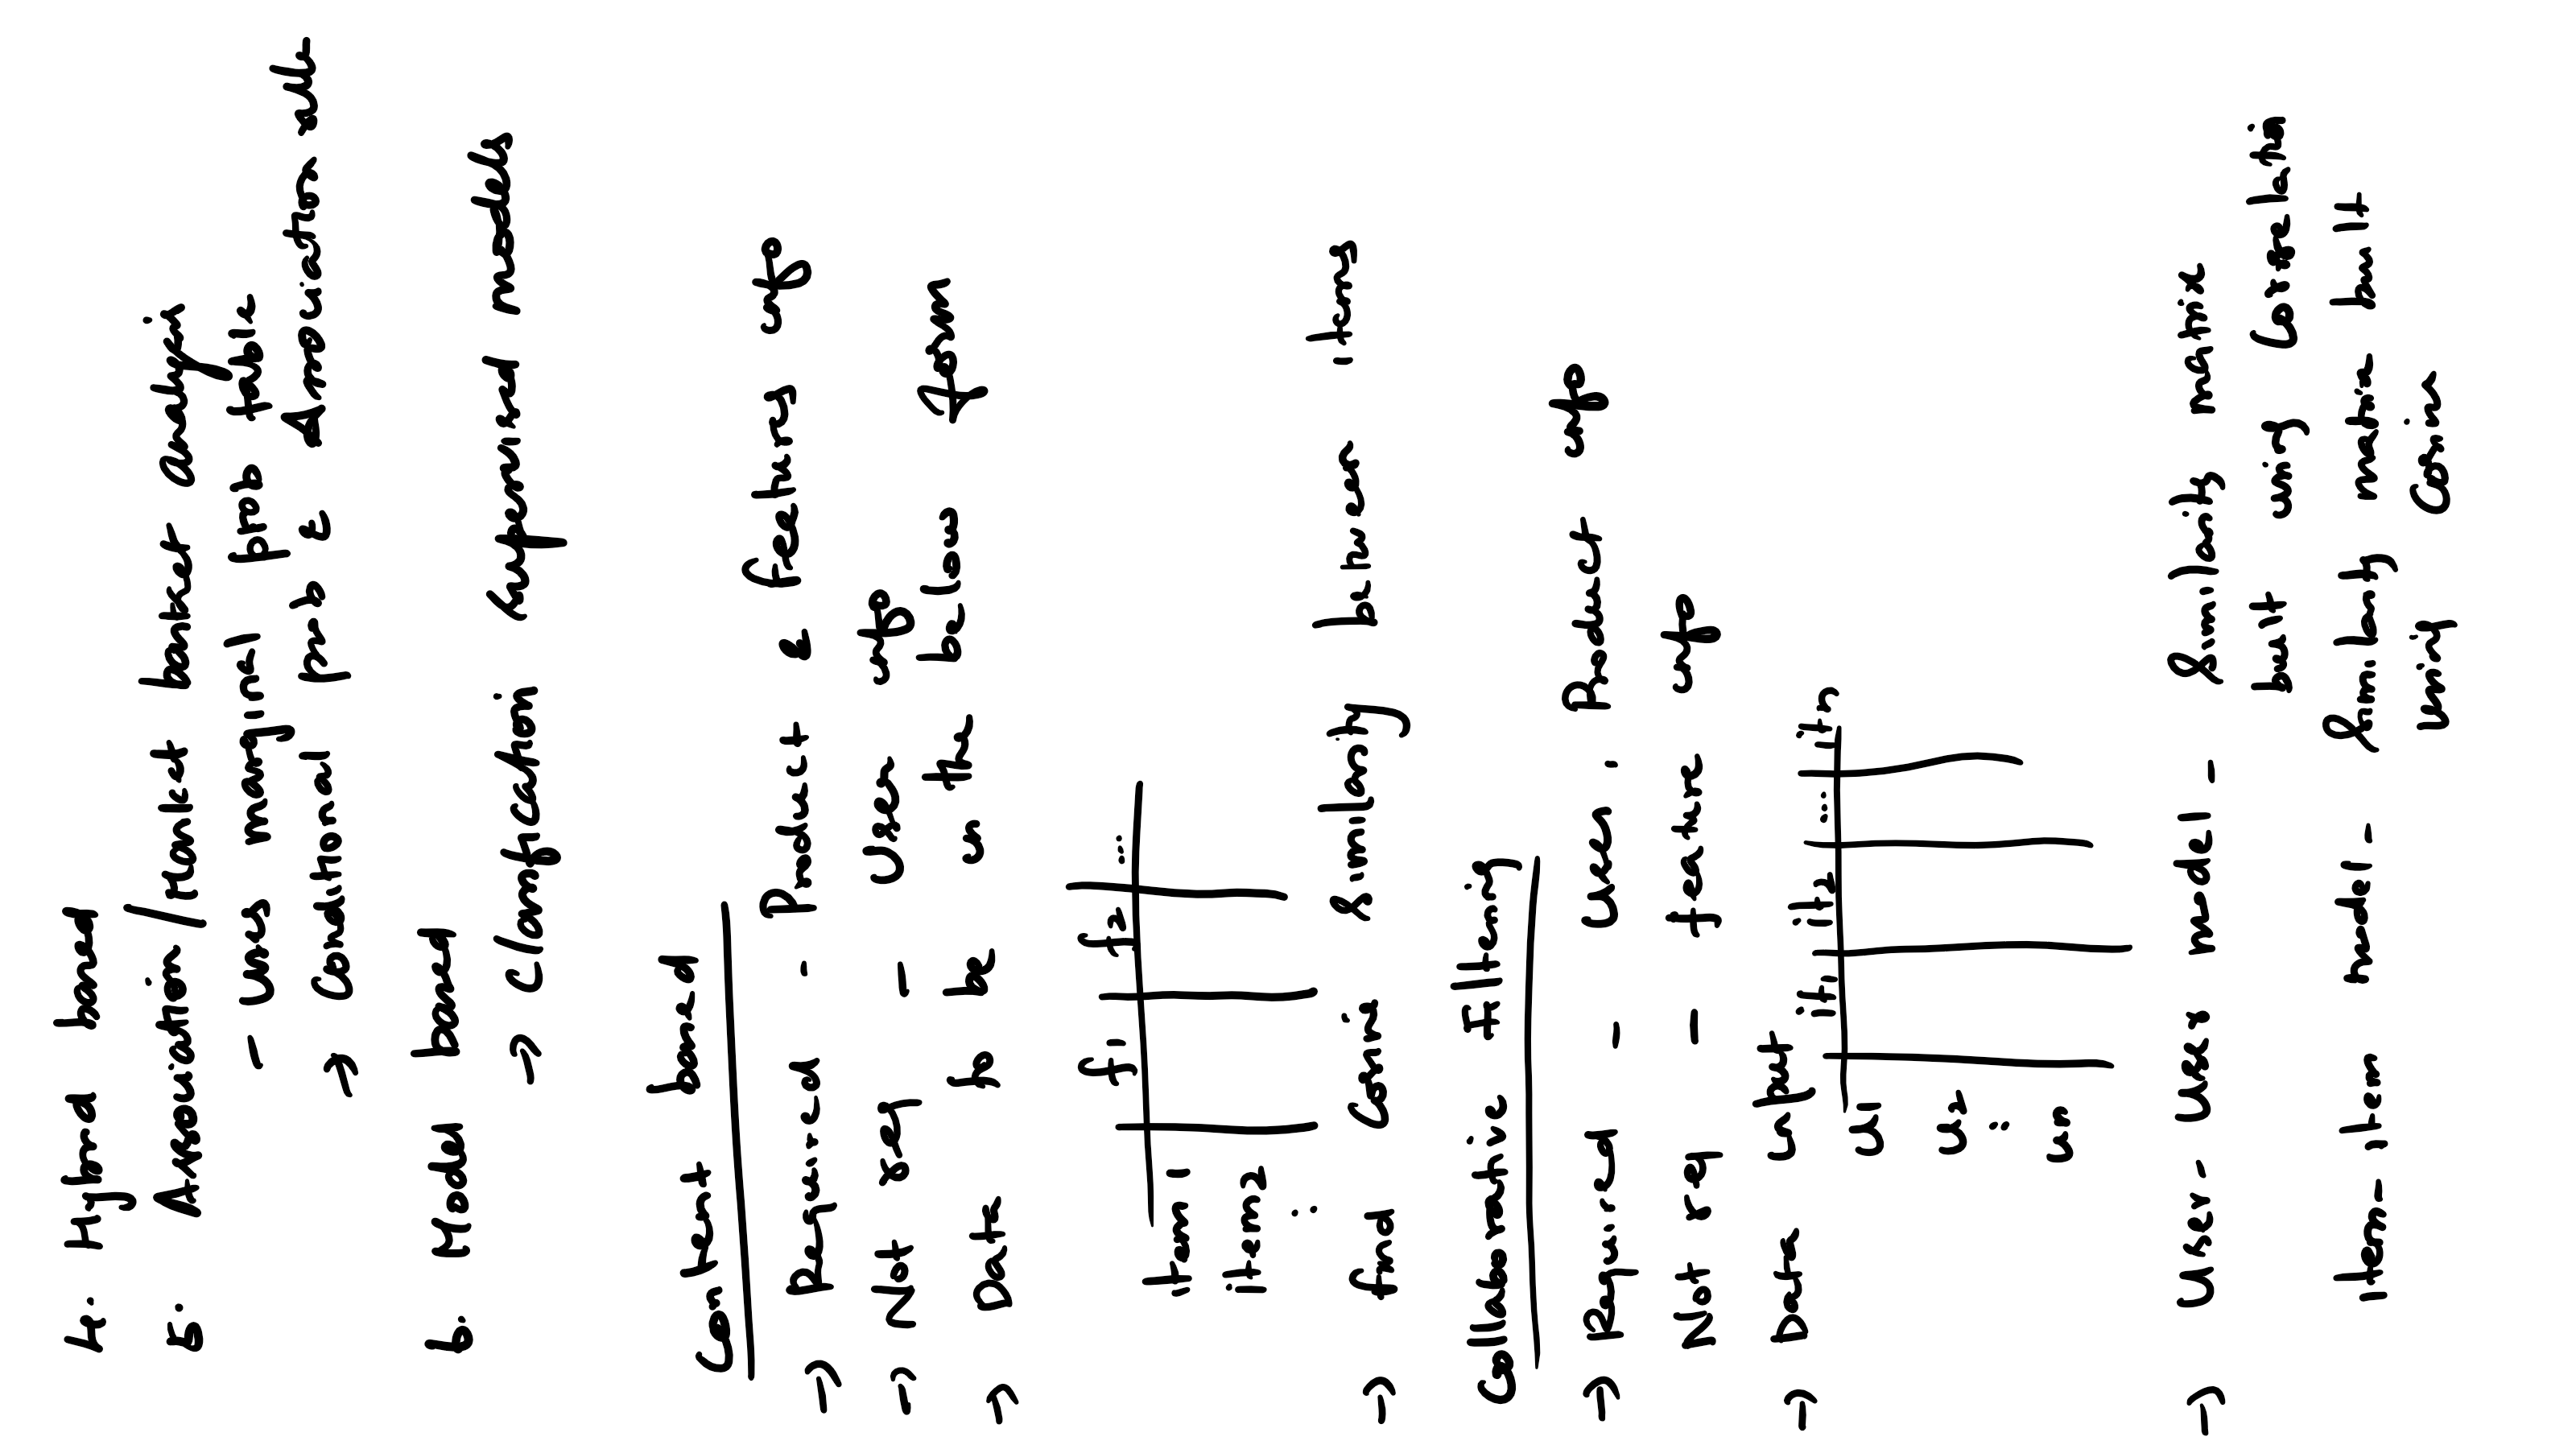 4. Hybrid based
5. Association/Market basket analysis
- uses marginal prob table
→ Conditional prob & Association rule
6. Model based
→ Classification supervised models
Content based
→ Required - Product & features info
→ Not req - User info
→ Data to be in the below form
f1 f2 ...
item 1
item2
:
→ find Cosine similarity between items
Collaborative filtering
→ Required - User, Product info
Not req - feature info
→ Data input
it1 it2 ... itn
U1
U2
:
un
→ User-User model - Similarity matrix
built using Correlation
item-item model - Similarity matrix built
using Cosine